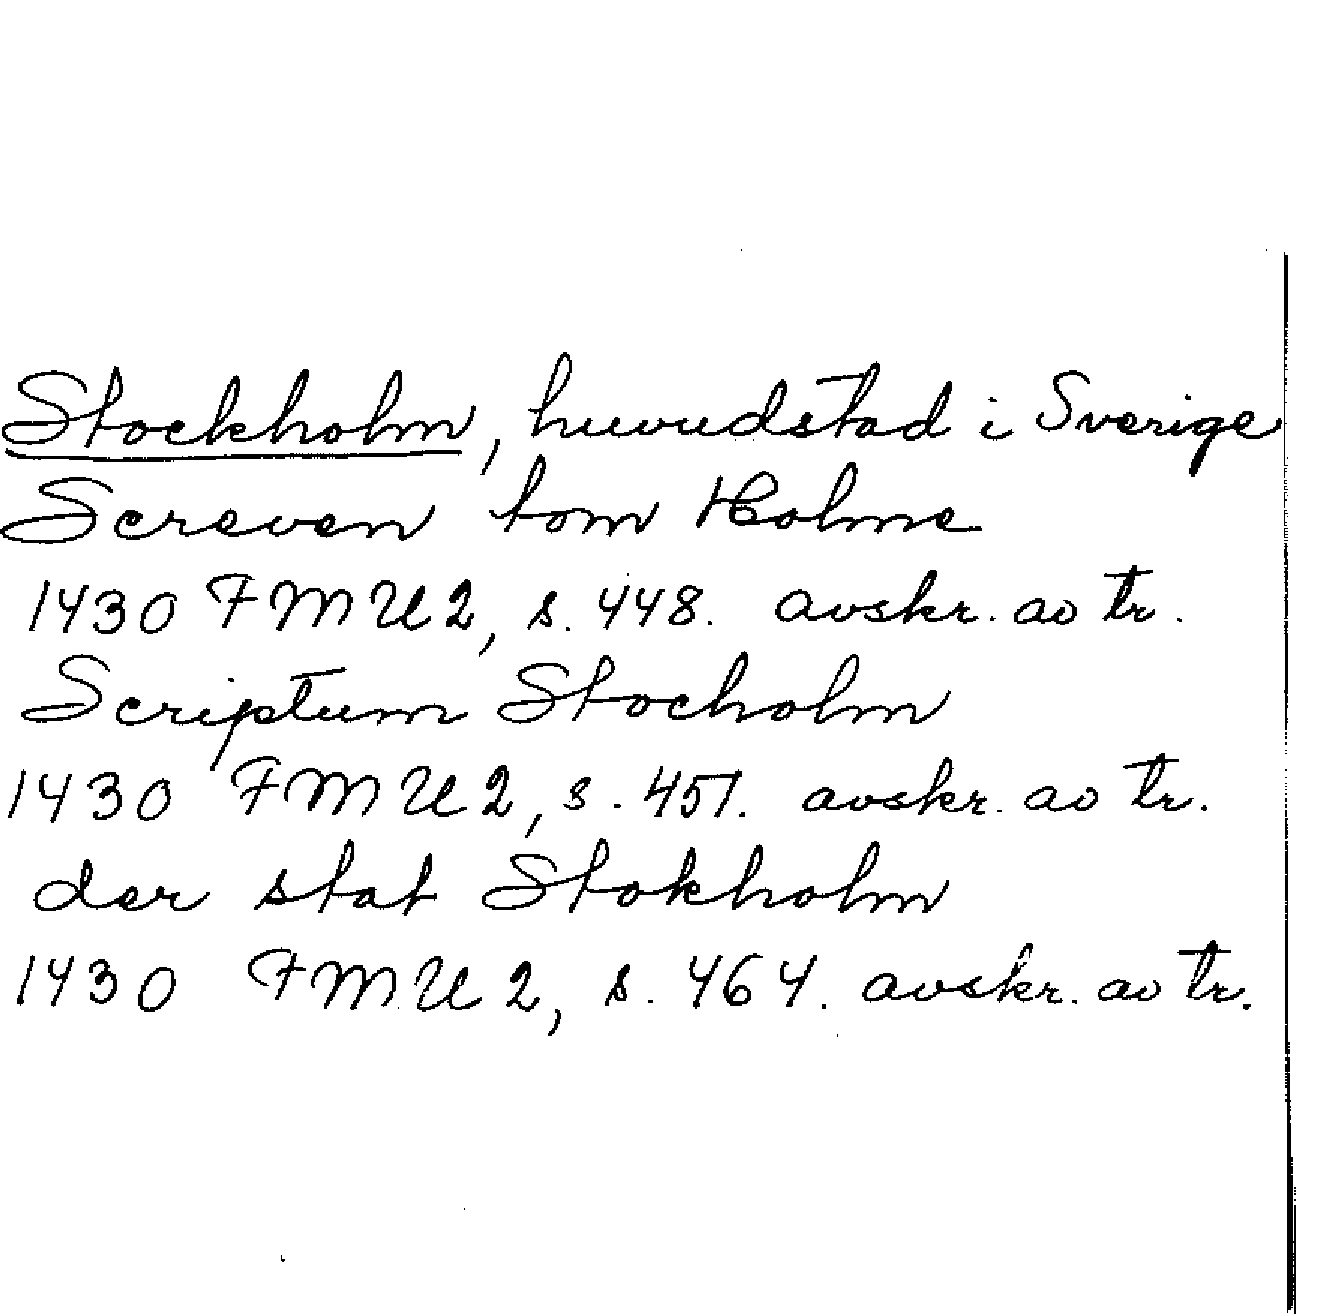 Stockholm, huvudstad i Sverige
Screven tom Holme
1430 FMU 2, s. 448. avskr. av tr.
Scriptum Stocholm
1430 FMU 2, s. 451. avskr. av tr.
der stat Stokholm
1430 FMU 2, s. 464. avskr. av tr.